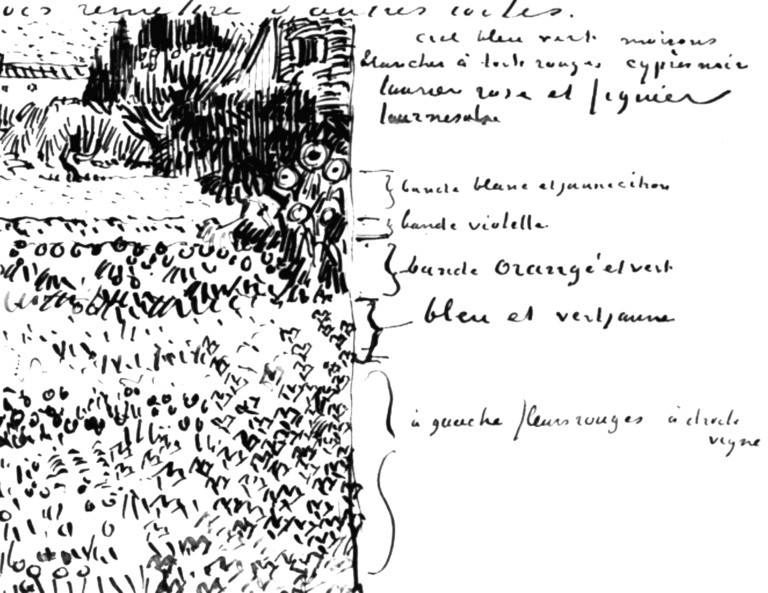 vous remettre d'autres toiles.
ciel bleu vert maisons
blanches à toits rouges cyprès noir
laurier rose et figuier
tournesols
bande blanc et jaune citron
bande violette
bande orangé et vert
bleu et vert jaune
à gauche fleurs rouges à droite
vigne